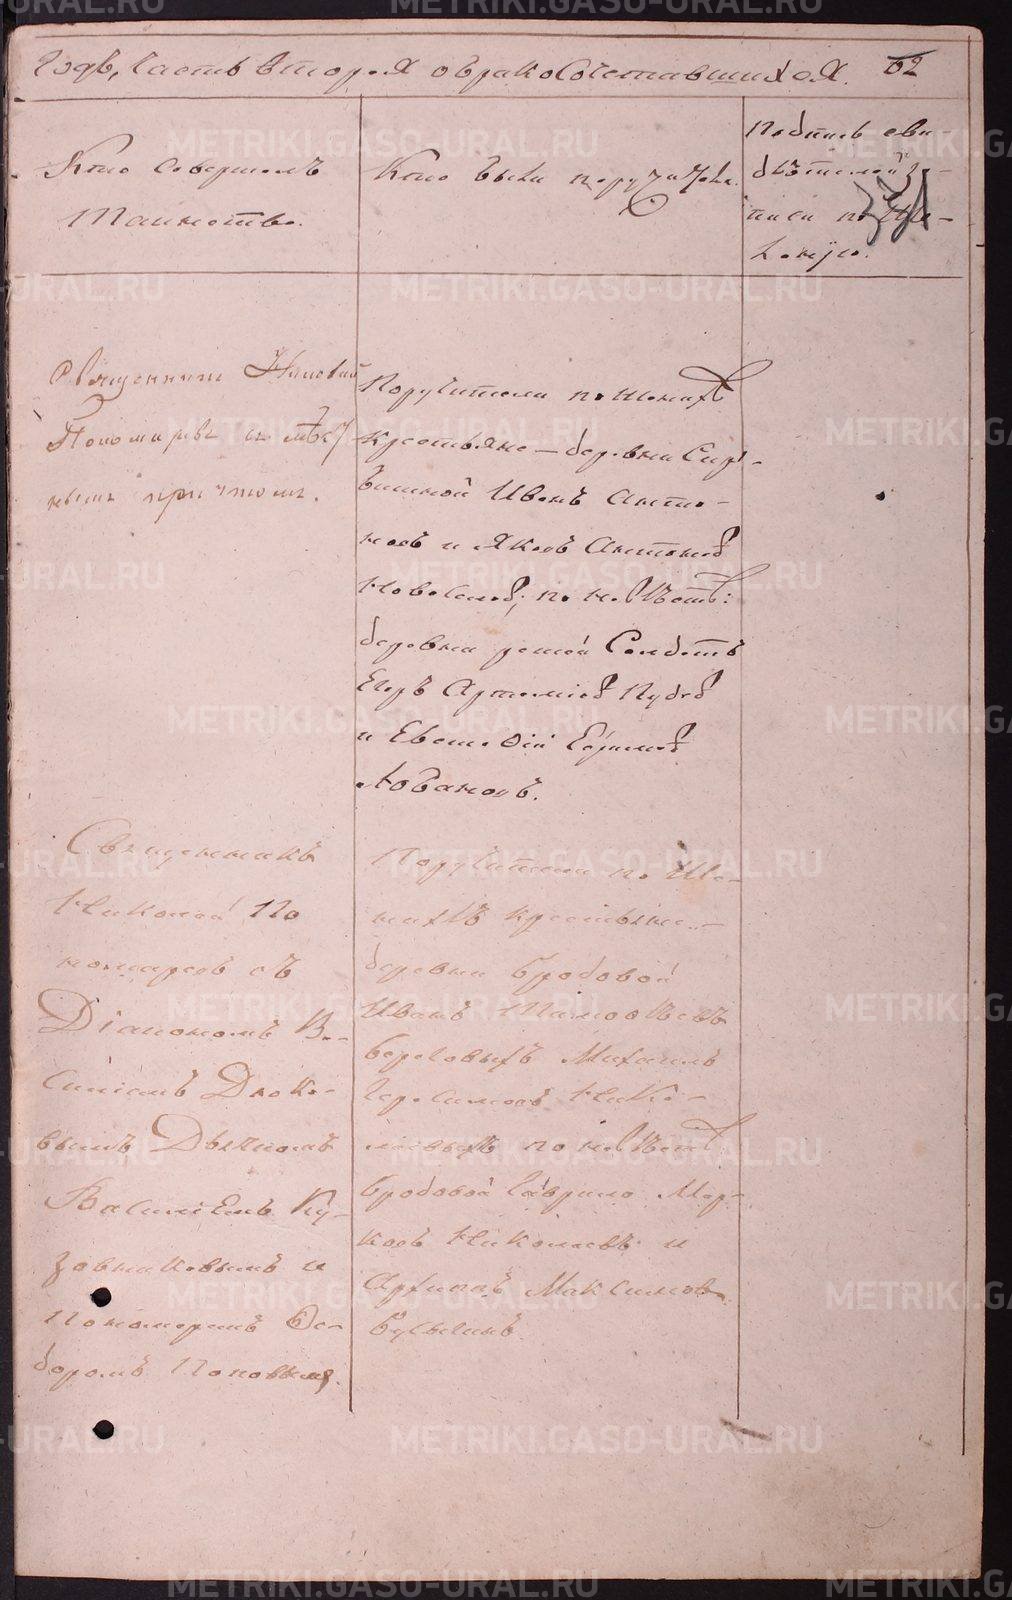 Годъ, Часть вторая о бракосочетавшихся. 62
Кто совершалъ
Таинство.
Кто были поручители.
Подпись сви
дѣтелей за-
писи по же-
ланію.
Священникъ Николай
Пономаревъ съ
нымъ причтомъ.
Поручители по женихѣ
крестьяне деревни
Иванъ Анто-
новъ и Яковъ Антоновъ
по невѣстѣ:
деревни Солдатъ
Егоръ Артеміевъ
и Евстафій Ефимовъ
Лобановъ.
Священникъ
Николай По
номаревъ съ
Діакономъ Ва-
силіемъ
вымъ Дьячкомъ
Василіемъ Ку-
зовниковымъ и
Пономаремъ Ѳе-
доромъ Поповымъ.
Поручители по Же-
нихѣ крестьяне
деревни Бродовой
Иванъ Тимофѣевъ
Береговыхъ Михаилъ
Герасимовъ Нико-
по невѣстѣ
Бродовой Гаврило Мар-
ковъ Николаевъ и
Архипъ Максимовъ
METRIKI.GASO-URAL.RU